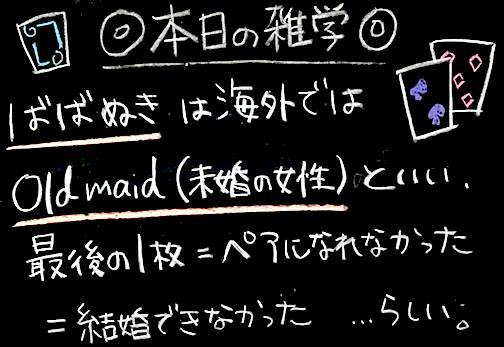 ◎本日の雑学◎
ばばぬき は海外では
Old maid(未婚の女性)といい、
最後の1枚=ペアになれなかった
=結婚できなかった …らしい。